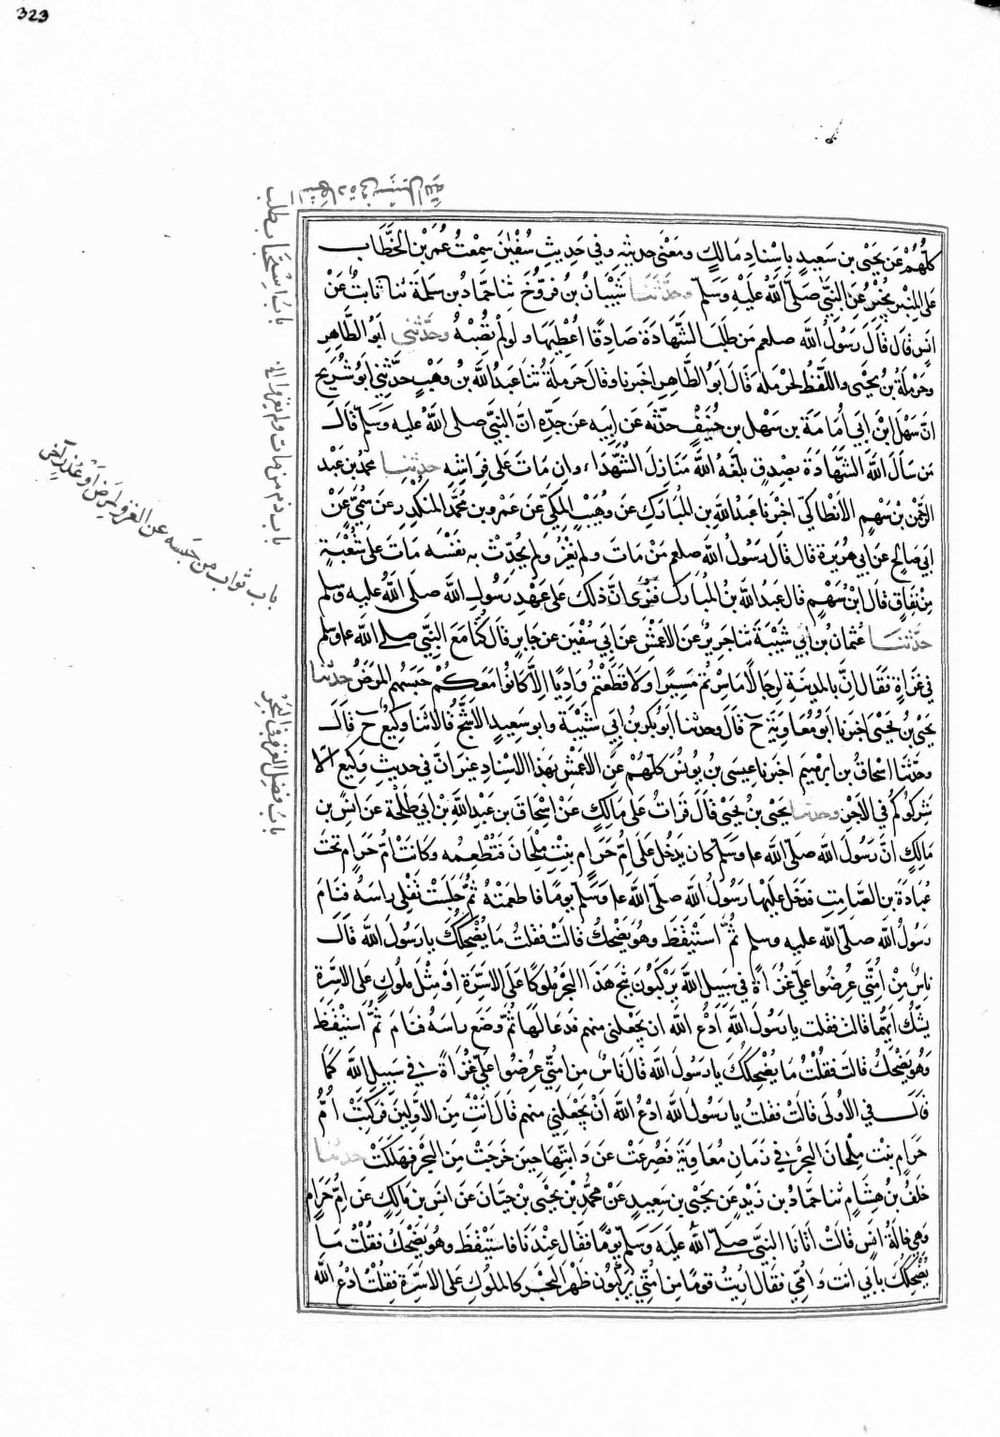 323
باب استحباب طلب
الشهادة في سبيل الله
باب ذم من مات ولم يغز
باب ثواب من حبسه عن الغزو مرض او عذر آخر
باب فضل الغزو في البحر
كلّهم عن يحيى بن سعيد باسناد مالك ومعنى حديثه وفي حديث سفين سمعت عمر بن الخطاب
على المنبر يخبر عن النبي صلى الله عليه وسلم وحدثنا شيبان بن فروخ ثنا حماد بن سلمة ثنا ثابت عن
انس قال قال رسول الله صلعم من طلب الشهادة صادقا اعطيها ولو لم تصبه وحدثني ابو الطاهر
وحرملة بن يحيى واللفظ لحرملة قال ابو الطاهر اخبرنا وقال حرملة ثنا عبد الله بن وهب حدثني ابو شريح
ان سهل ابن ابي امامة بن سهل بن حنيف حدثه عن ابيه عن جده ان النبي صلى الله عليه وسلم قال
من سأل الله الشهادة بصدق بلغه الله منازل الشهداء وان مات على فراشه حدثنا محمد بن عبد
الرحمن بن سهم الانطاكي اخبرنا عبد الله بن المبارك عن وهيب المكي عن عمرو بن محمد المنكدر عن سمي عن
ابي صالح عن ابي هريرة قال قال رسول الله صلعم من مات ولم يغز ولم يحدث به نفسه مات على شعبة
من نفاق قال ابن سهم قال عبد الله بن المبارك فنرى ان ذلك على عهد رسول الله صلى الله عليه وسلم
حدثنا عثمان بن ابي شيبة ثنا جرير عن الاعمش عن ابي سفين عن جابر قال كنا مع النبي صلى الله عله وسلم
في غزاة فقال ان بالمدينة لرجالا ما سرتم مسيرا ولا قطعتم واديا الا كانوا معكم حبسهم المرض حدثنا
يحيى بن يحيى اخبرنا ابو معاوية ح قال وحدثنا ابو بكر بن ابي شيبة وابو سعيد الاشج قالا ثنا وكيع ح قال
وحدثنا اسحاق بن ابرهيم اخبرنا عيسى بن يونس كلهم عن الاعمش بهذا الاسناد غير ان في حديث وكيع الا
شركوكم في الاجر وحدثنا يحيى بن يحيى قال قرات على مالك عن اسحاق بن عبد الله بن ابي طلحة عن انس بن
مالك ان رسول الله صلى الله عله وسلم كان يدخل على ام حرام بنت ملحان فتطعمه وكانت ام حرام تحت
عبادة بن الصامت فدخل عليها رسول الله صلى الله عله وسلم يوما فاطعمته ثم جلست تفلي راسه فنام
رسول الله صلى الله عليه وسلم ثم استيقظ وهو يضحك قالت فقلت ما يضحكك يا رسول الله قال
ناس من امتي عرضوا علي غزاة في سبيل الله يركبون ثبج هذا البحر ملوكا على الاسرة او مثل ملوك على الاسرة
يشك ايهما قالت فقلت يا رسول الله ادع الله ان يجعلني منهم فدعا لها ثم وضع راسه فنام ثم استيقظ
وهو يضحك قالت فقلت ما يضحكك يا رسول الله قال ناس من امتي عرضوا علي غزاة في سبيل الله كما
قال في الاولى قالت فقلت يا رسول الله ادع الله ان يجعلني منهم قال انت من الاولين فركبت ام
حرام بنت ملحان البحر في زمان معاوية فصرعت عن دابتها حين خرجت من البحر فهلكت حدثنا
خلف بن هشام ثنا حماد بن زيد عن يحيى بن سعيد عن محمد بن يحيى بن حبان عن انس بن مالك عن ام حرام
وهي خالة انس قالت اتانا النبي صلى الله عليه وسلم يوما فقال عندنا فاستيقظ وهو يضحك فقلت ما
يضحكك بابي انت وامي فقال اريت قوما من امتي يركبون ظهر البحر كالملوك على الاسرة فقلت ادع الله